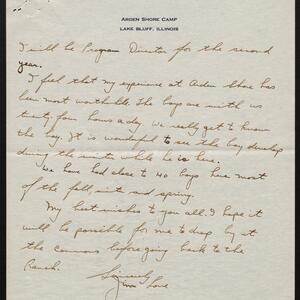 ARDEN SHORE CAMP
LAKE BLUFF, ILLINOIS
I will be Program Director for the second
year.
I feel that my experience at Arden Shore has
been most worthwhile. The boys are with us
twenty four hours a day. We really get to know
the boy. It is wonderful to see the boy develop
during the winter while he is here.
We have had close to 40 boys here most
of the fall, winter and spring.
My best wishes to you all. I hope it
will be possible for me to drop by at
the campus before going back to the
Ranch.
Sincerely
Jim Love